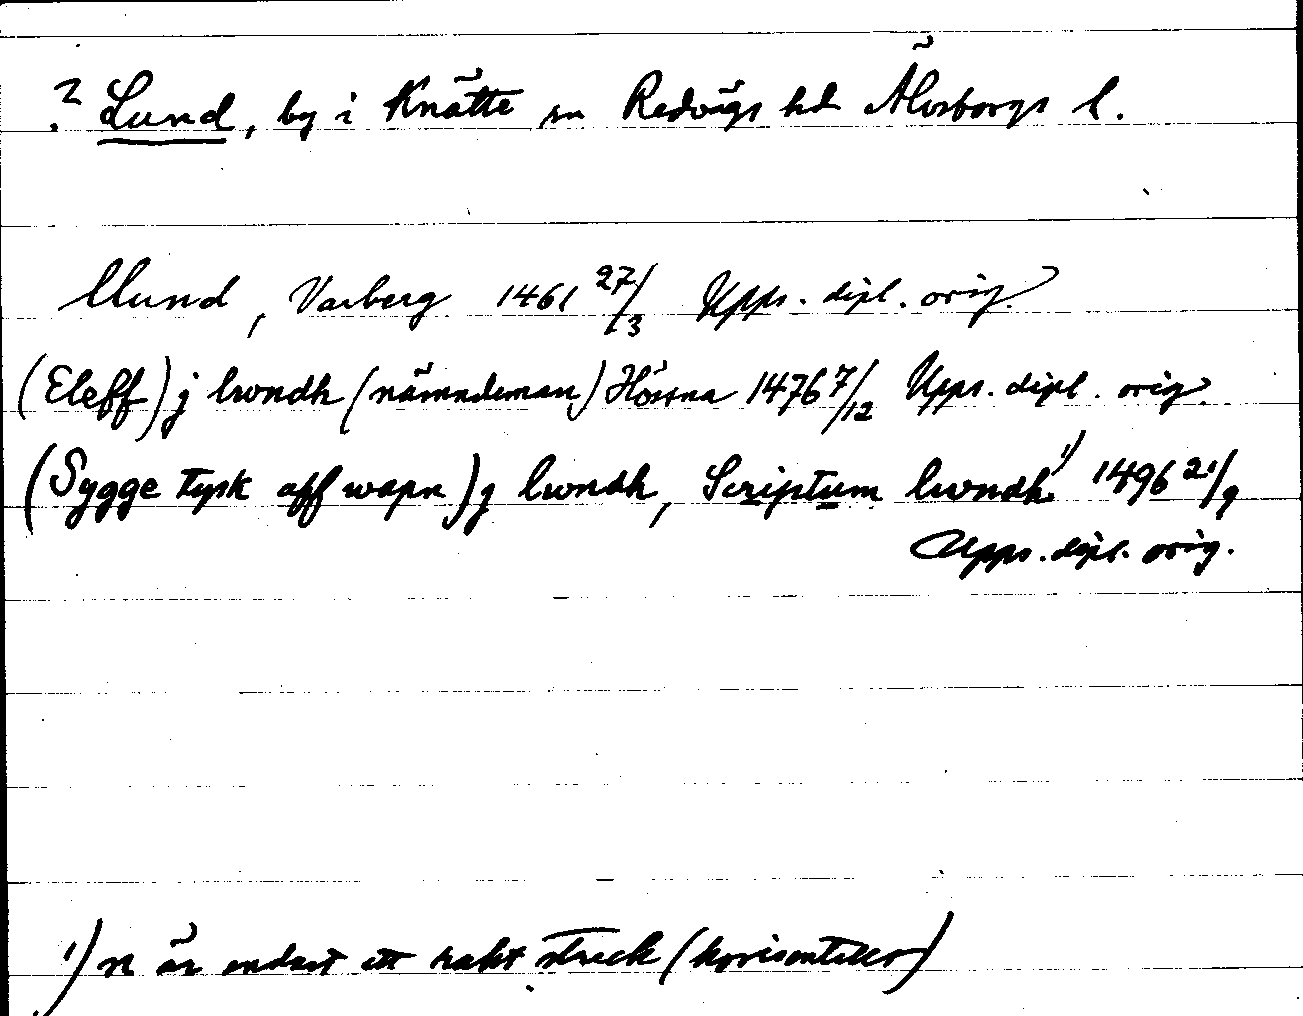 ? Lund, by i Knätte sn Redvägs hd Älvsborgs l.
Llund, Varberg 1461 27/3 Upps. dipl. orig.
(Eleff) j lwndh (nämndeman) Hössna 1476 7/12 Upps. dipl. orig.
(Sygge tysk aff wapn) j lwndh, Scriptum lwndh 1) 1496 21/9
Upps. dipl. orig.
1) n är endast ett rakt streck (horisontellt)